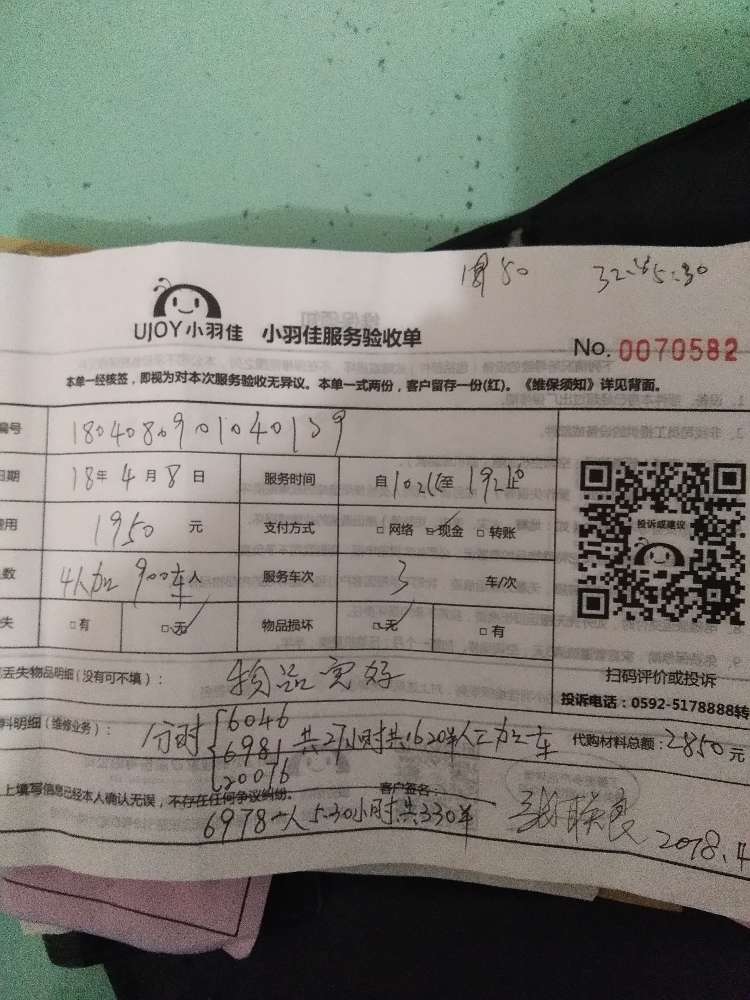 UJOY小羽佳 小羽佳服务验收单
No. 0070582
本单一经核签，即视为对本次服务验收无异议。本单一式两份，客户留存一份(红)。《维保须知》详见背面。
编号 180408901040139
日期 18年4月8日 服务时间 自 至 止
费用 1950 元 支付方式 □网络 □现金 □转账
数 4人加 900车 人 服务车次 3 车/次
失 □有 □无 物品损坏 □无 □有
投诉或建议
扫码评价或投诉
投诉电话：0592-5178888转
丢失物品明细（没有可不填）： 物品完好
料明细（维修业务）： 分时 6046 6981 20016 共27小时共1620半人工加车 代购材料总额：2850元
上填写信息已经本人确认无误，不存在任何争议纠纷。 客户签名：
6978一人 5.30小时共330半 联良 2018.4